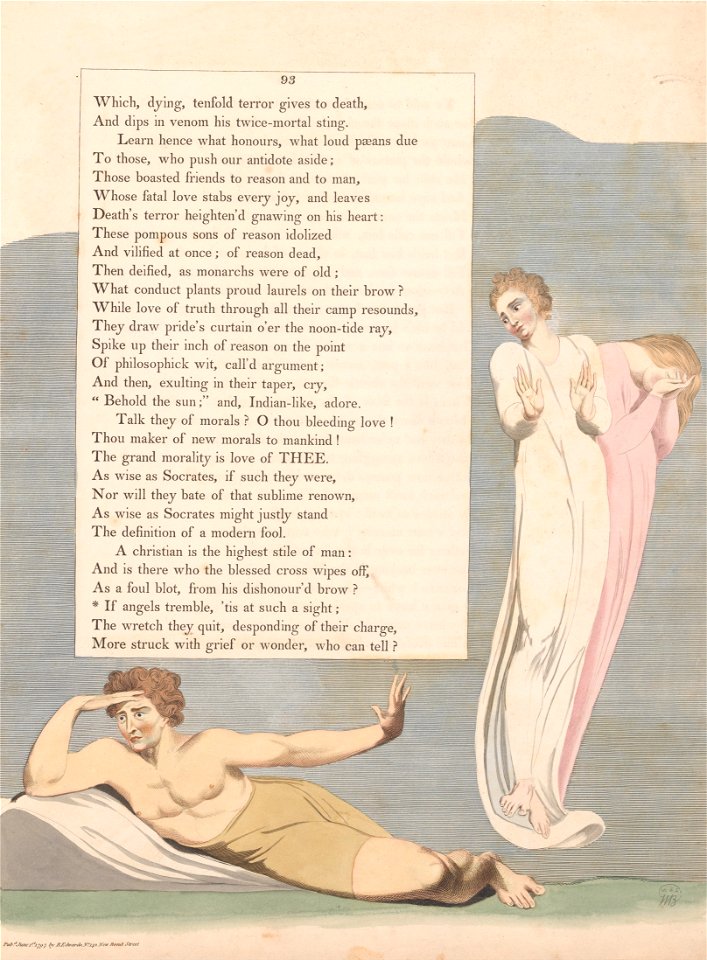 93
Which, dying, tenfold terror gives to death,
And dips in venom his twice-mortal sting.
Learn hence what honours, what loud pæans due
To those, who push our antidote aside;
Those boasted friends to reason and to man,
Whose fatal love stabs every joy, and leaves
Death's terror heighten'd gnawing on his heart:
These pompous sons of reason idolized
And vilified at once; of reason dead,
Then deified, as monarchs were of old;
What conduct plants proud laurels on their brow?
While love of truth through all their camp resounds,
They draw pride's curtain o'er the noon-tide ray,
Spike up their inch of reason on the point
Of philosophick wit, call'd argument;
And then, exulting in their taper, cry,
“ Behold the sun;” and, Indian-like, adore.
Talk they of morals? O thou bleeding love!
Thou maker of new morals to mankind!
The grand morality is love of THEE.
As wise as Socrates, if such they were,
Nor will they bate of that sublime renown,
As wise as Socrates might justly stand
The definition of a modern fool.
A christian is the highest stile of man:
And is there who the blessed cross wipes off,
As a foul blot, from his dishonour'd brow?
* If angels tremble, 'tis at such a sight;
The wretch they quit, desponding of their charge,
More struck with grief or wonder, who can tell?
WB
Pub.d June 1.st 1797 by R. Edwards, N.o 142 New Bond Street